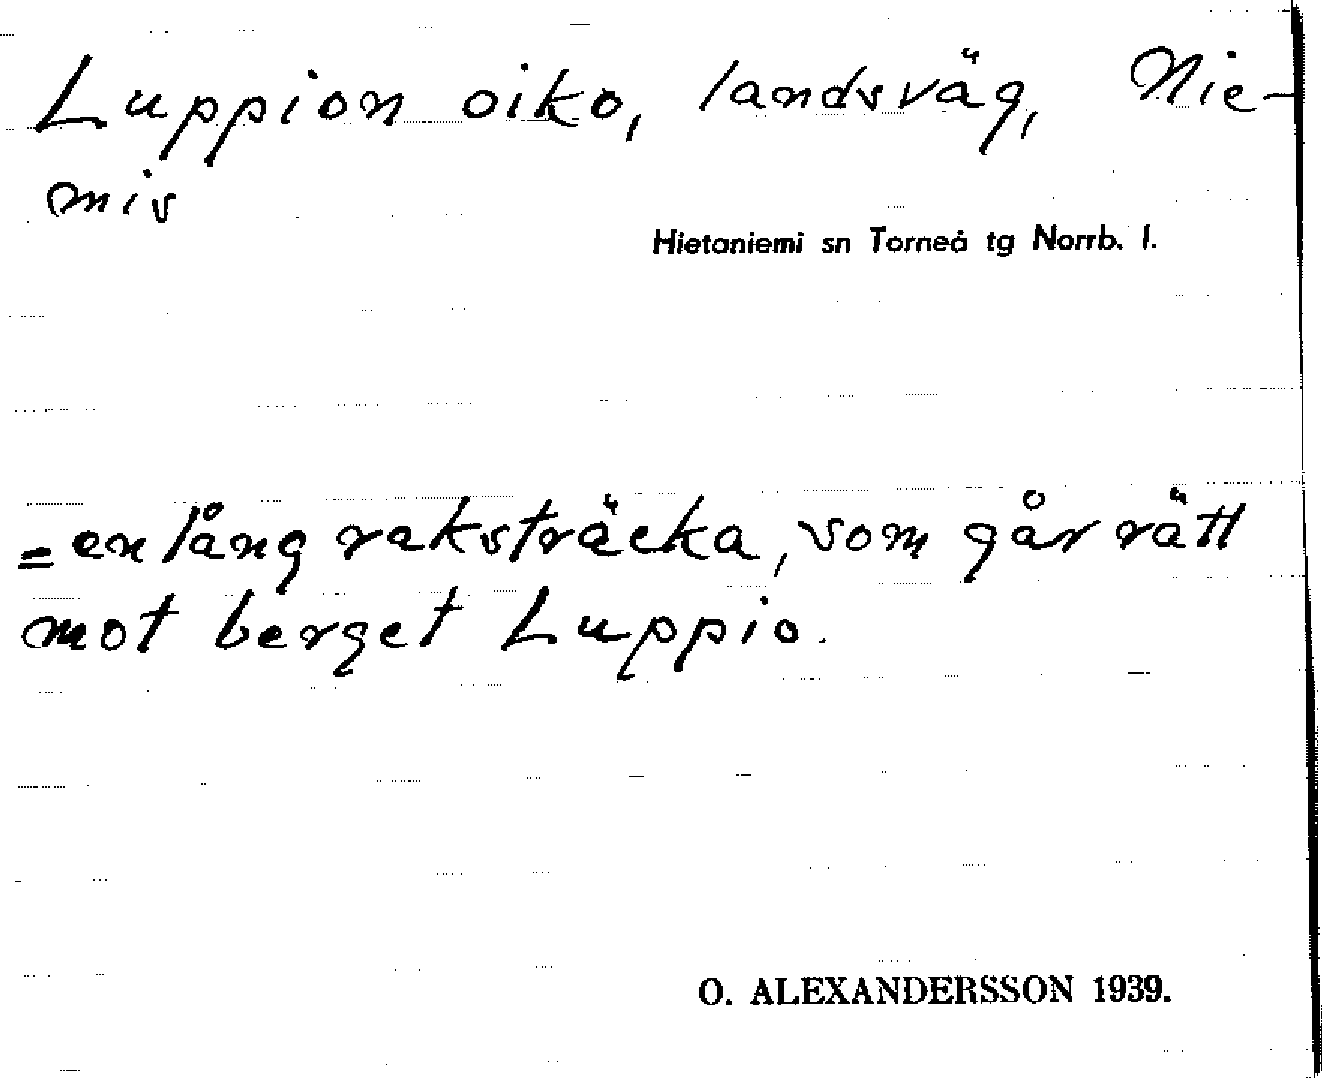 Luppion oiko, landsväg, Nie-
mis
Hietaniemi sn Torneå tg Norrb. l.
= en lång raksträcka, som går rätt
mot berget Luppio.
O. ALEXANDERSSON 1939.